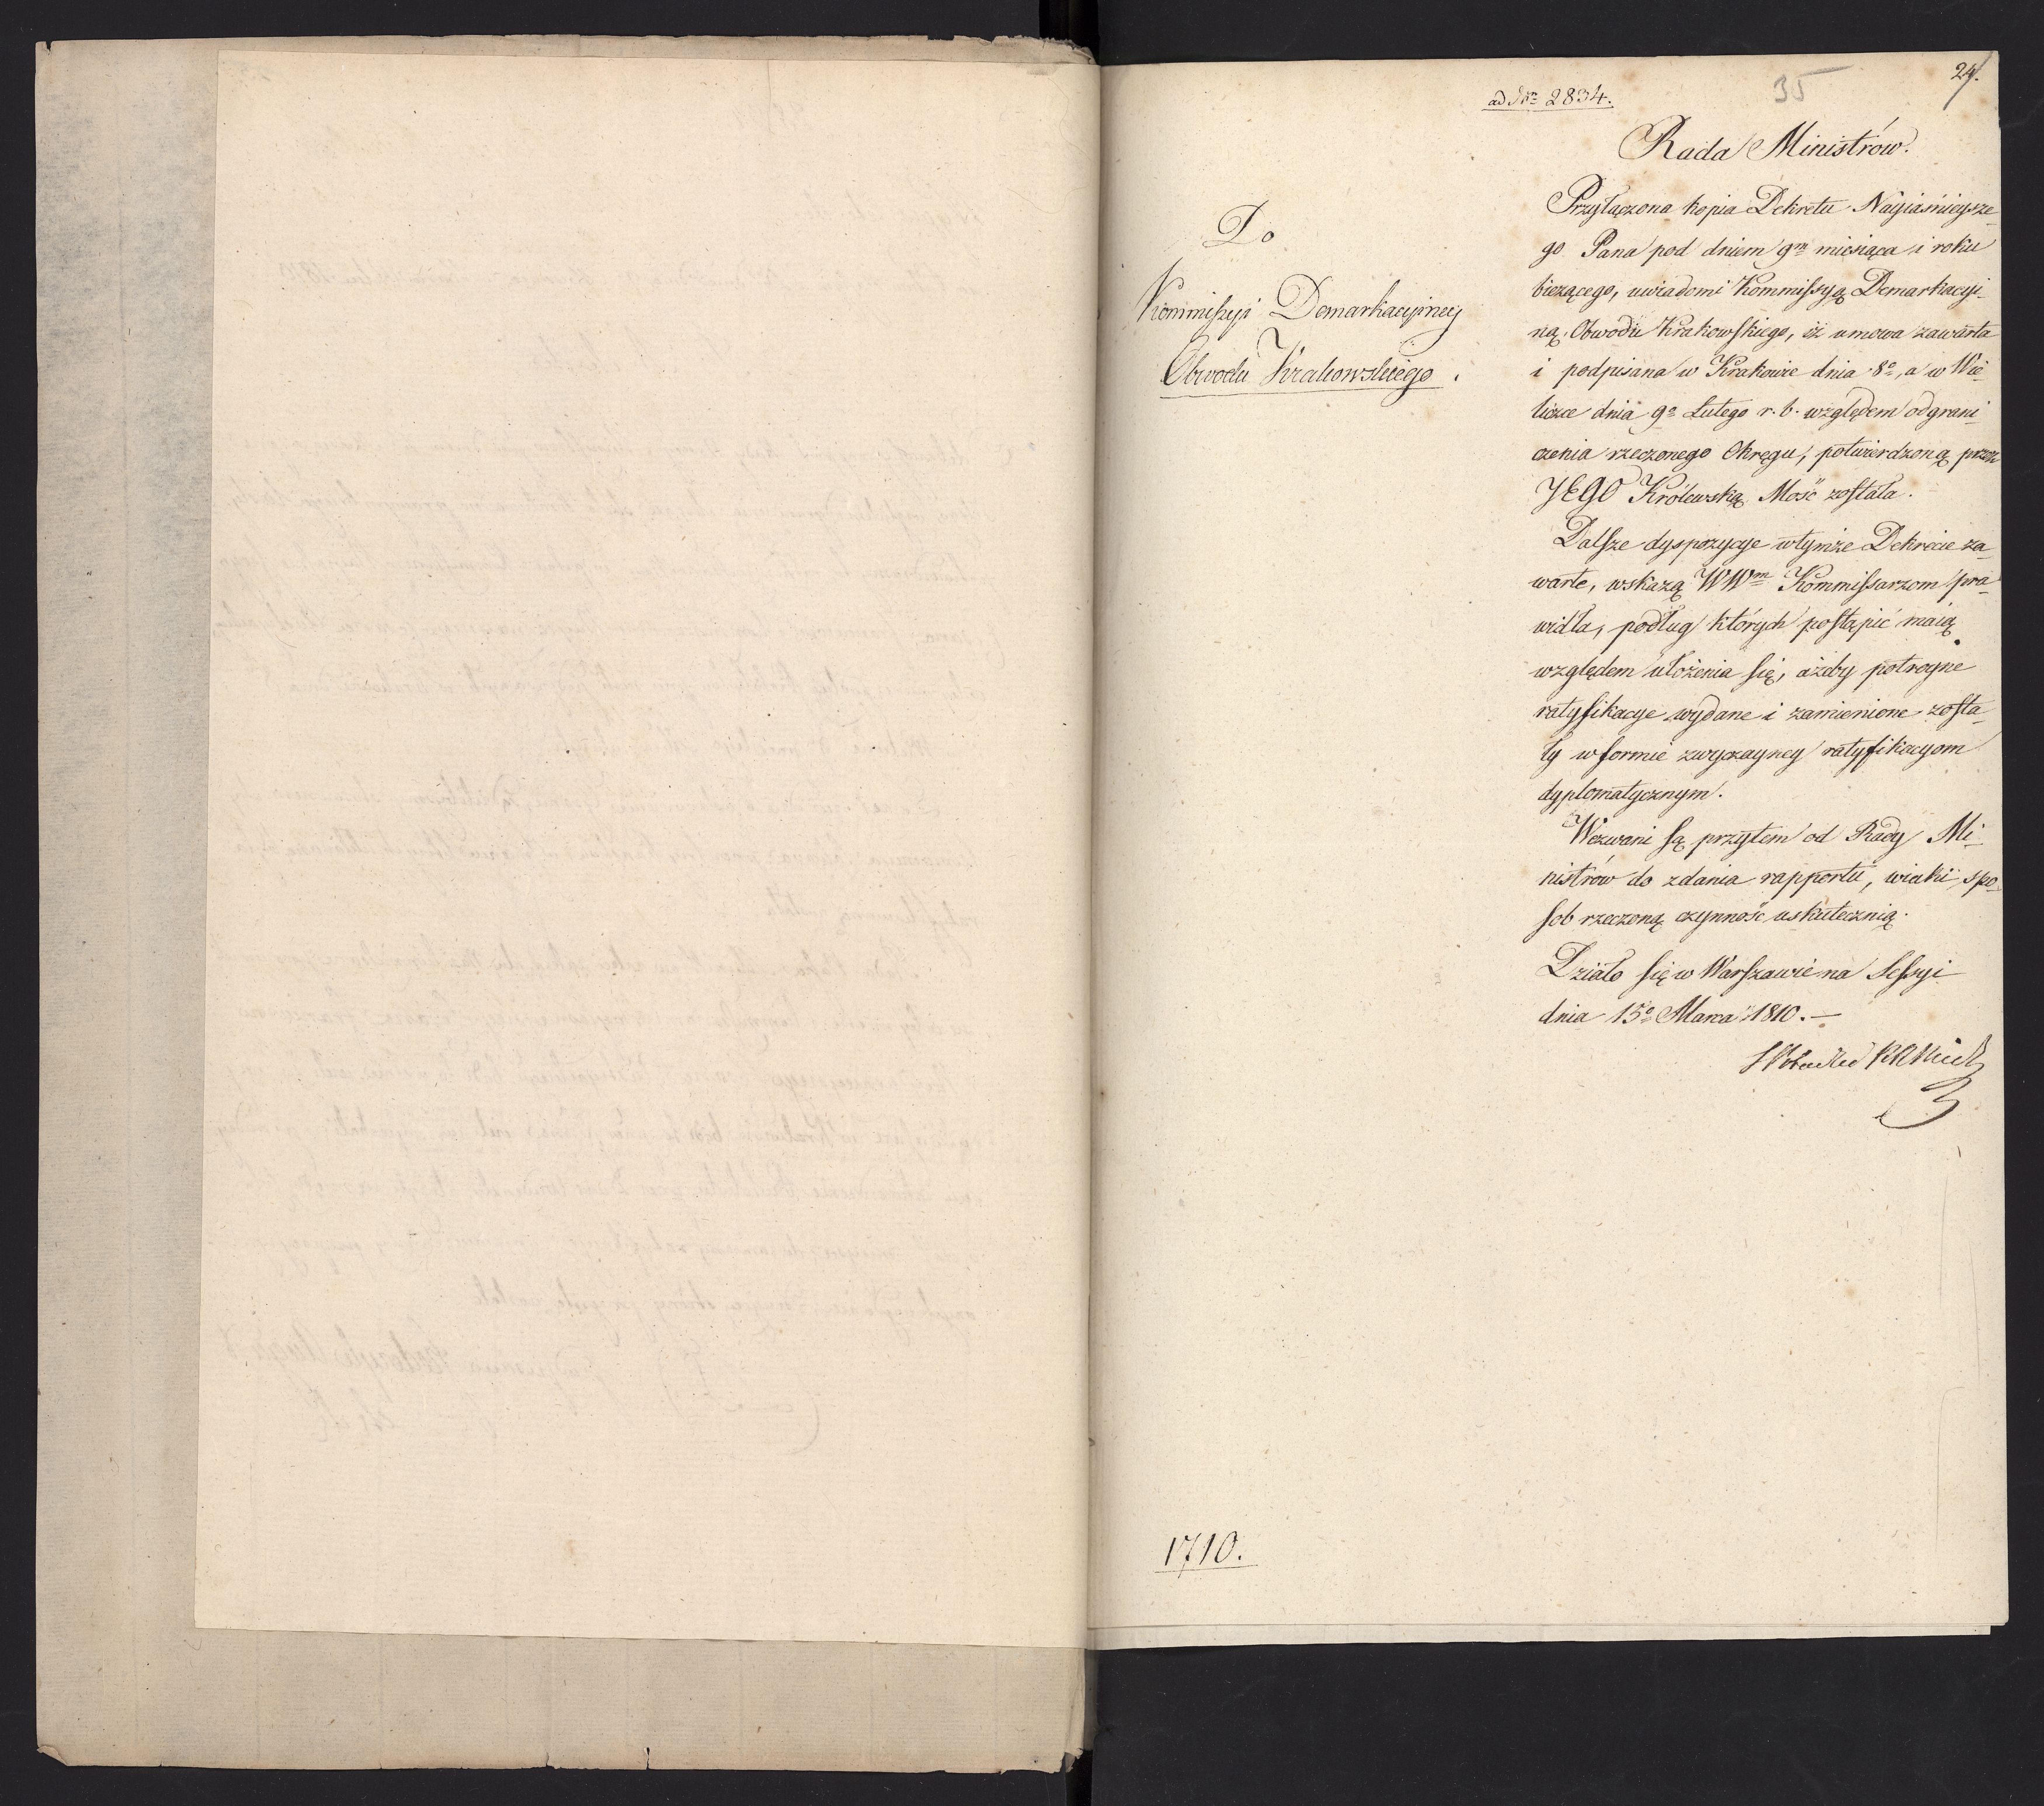 24.
35
ad Nro 2834.
Rada Ministrów.
Do
Kommissyi Demarkacyiney
Obwodu Krakowskiego.
Przyłączona kopia Dekretu Nayiaśnieysze-
go Pana pod dniem 9m miesiąca i roku
bieżącego, uwiadomi Kommissyą Demarkacyi-
ną Obwodu Krakowskiego, iż umowa zawarta
i podpisana w Krakowie dnia 8o, a w Wie-
liczce dnia 9o Lutego r. b. względem odgrani-
czenia rzeczonego Okręgu, potwierdzoną przez
JEGO Królewską Mość została.
Dalsze dyspozycye w tymże Dekrecie za-
warte, wskażą WWm Kommissarzom pra-
widła, podług których postąpić maią
względem ułożenia się, ażeby potroyne
ratyfikacye wydane i zamienione zosta-
ły w formie zwyczayney ratyfikacyom
dyplomatycznym.
Wezwani są przytem od Rady Mi-
nistrów do zdania rapportu, w iaki spo-
sob rzeczoną czynność uskutecznią.
Działo się w Warszawie na Sessyi
dnia 15o Marca 1810. —
1710.